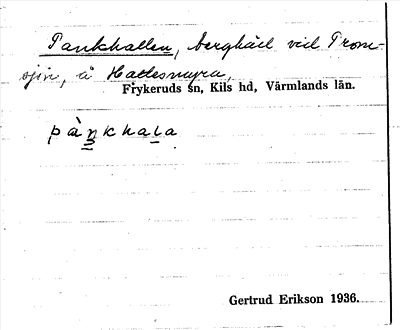 Pankhallen, berghäll vid From-
sjön, å Hattesmyra,
Frykeruds sn, Kils hd, Värmlands län.
pànkhala
Gertrud Erikson 1936.